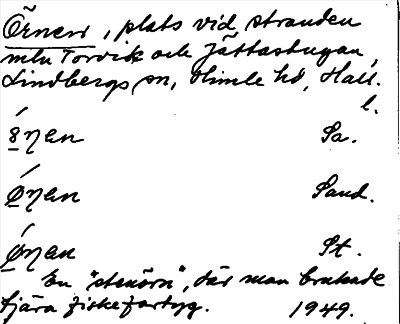 Örnen, plats vid stranden
mln Torvik och Jättastugan,
Lindbergs sn, Himle hd, Hall.
l.
8ηan Sa.
Øηan Sand.
Øηan St.
En "stenörn", där man brukade
tjära fiskefartyg. 1949.